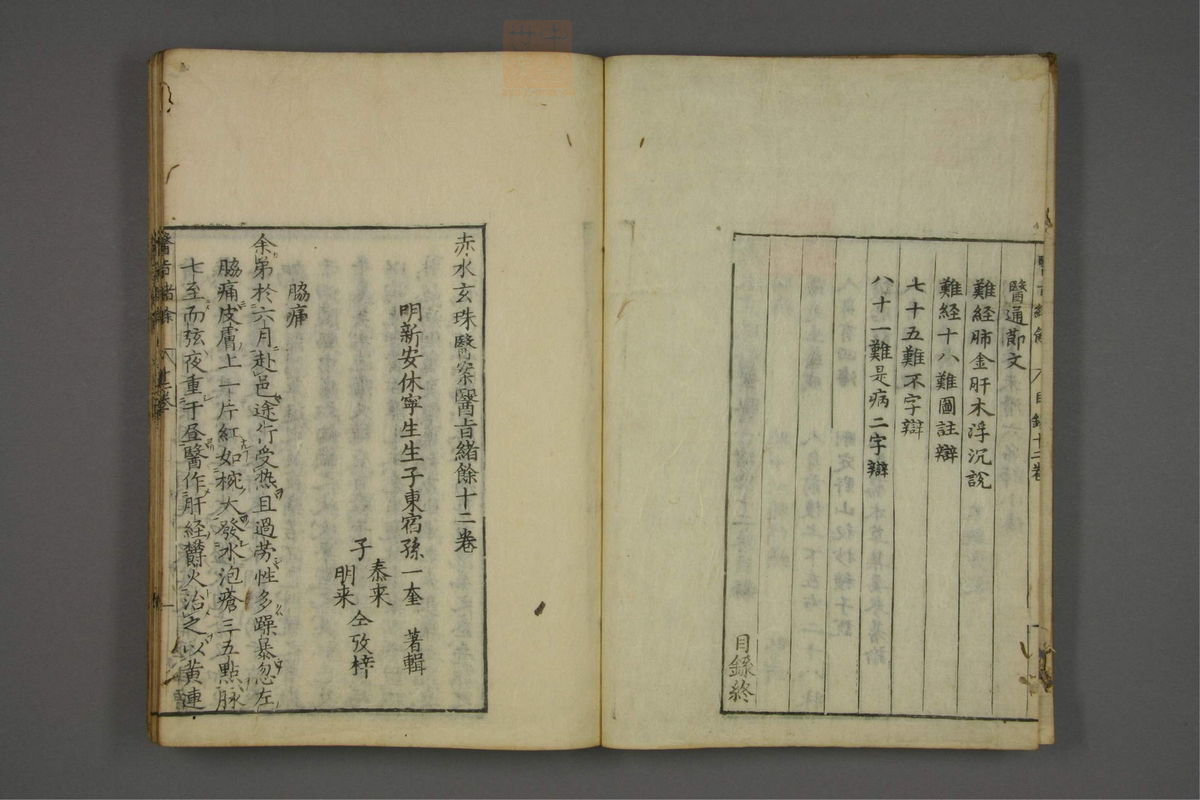 醫通節文
難経肺金肝木浮沉說
難経十八難圖註辯
七十五難不字辯
八十一難是病二字辯
目録終
赤水玄珠醫案醫旨緒餘十二巻
明新安休寧生生子東宿孫一奎 著輯
泰来
子 仝攷梓
明来
脇痛
余弟於六月赴邑途行受热且過劳性多躁暴忽左
脇痛皮膚上一片紅如椀大發水泡瘡三五點脉
七至而弦夜重于昼醫作肝経鬱火治之以黄連